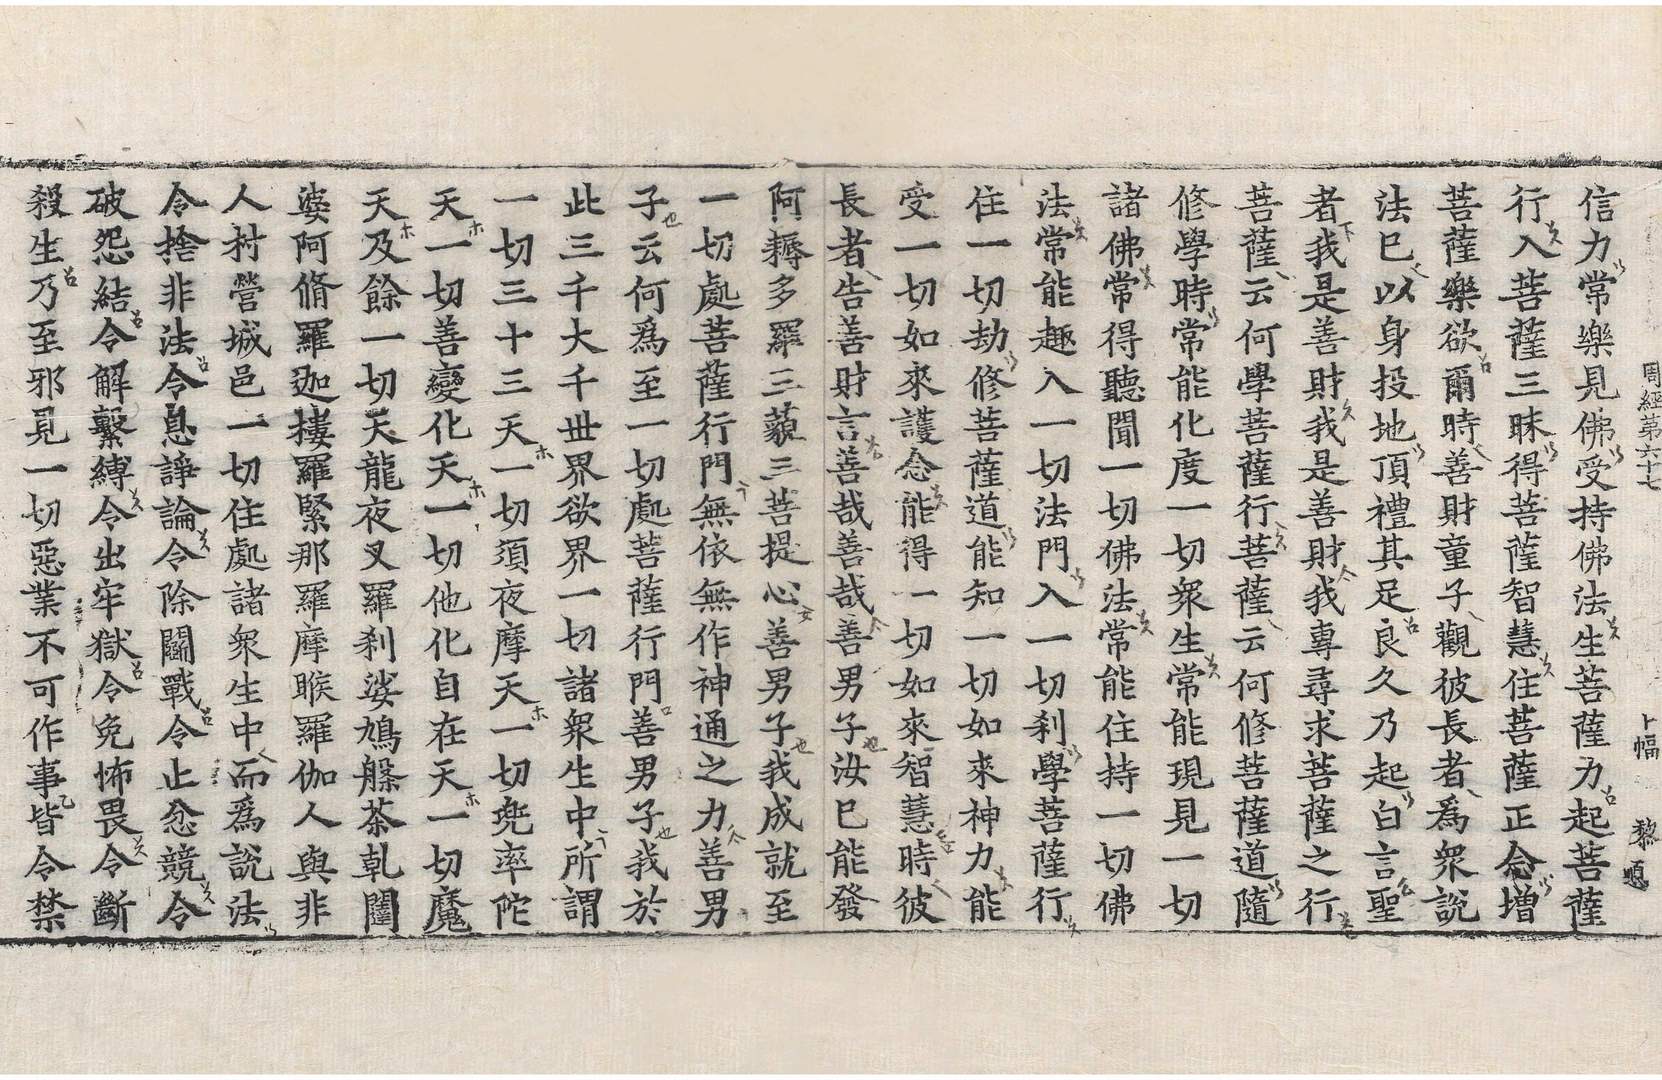 周經第六十七 卜幅 黎順
信力常樂見佛受持佛法生菩薩力起菩薩
行入菩薩三昧得菩薩智慧住菩薩正念增
菩薩樂欲爾時善財童子觀彼長者爲衆說
法已以身投地頂禮其足良久乃起白言聖
者我是善財我是善財我專尋求菩薩之行
菩薩云何學菩薩行菩薩云何修菩薩道隨
修學時常能化度一切衆生常能現見一切
諸佛常得聽聞一切佛法常能住持一切佛
法常能趣入一切法門入一切刹學菩薩行
住一切劫修菩薩道能知一切如來神力能
受一切如來護念能得一切如來智慧時彼
長者告善財言善哉善哉善男子汝已能發
阿耨多羅三藐三菩提心善男子我成就至
一切處菩薩行門無依無作神通之力善男
子云何爲至一切處菩薩行門善男子我於
此三千大千世界欲界一切諸衆生中所謂
一切三十三天一切須夜摩天一切兜率陀
天一切善變化天一切他化自在天一切魔
天及餘一切天龍夜叉羅刹娑鳩槃茶乹闥
婆阿脩羅迦樓羅緊那羅摩睺羅伽人與非
人村營城邑一切住處諸衆生中而爲說法
令捨非法令息諍論令除鬪戰令止忿競令
破怨結令解繫縛令出牢獄令免怖畏令斷
殺生乃至邪見一切惡業不可作事皆令禁